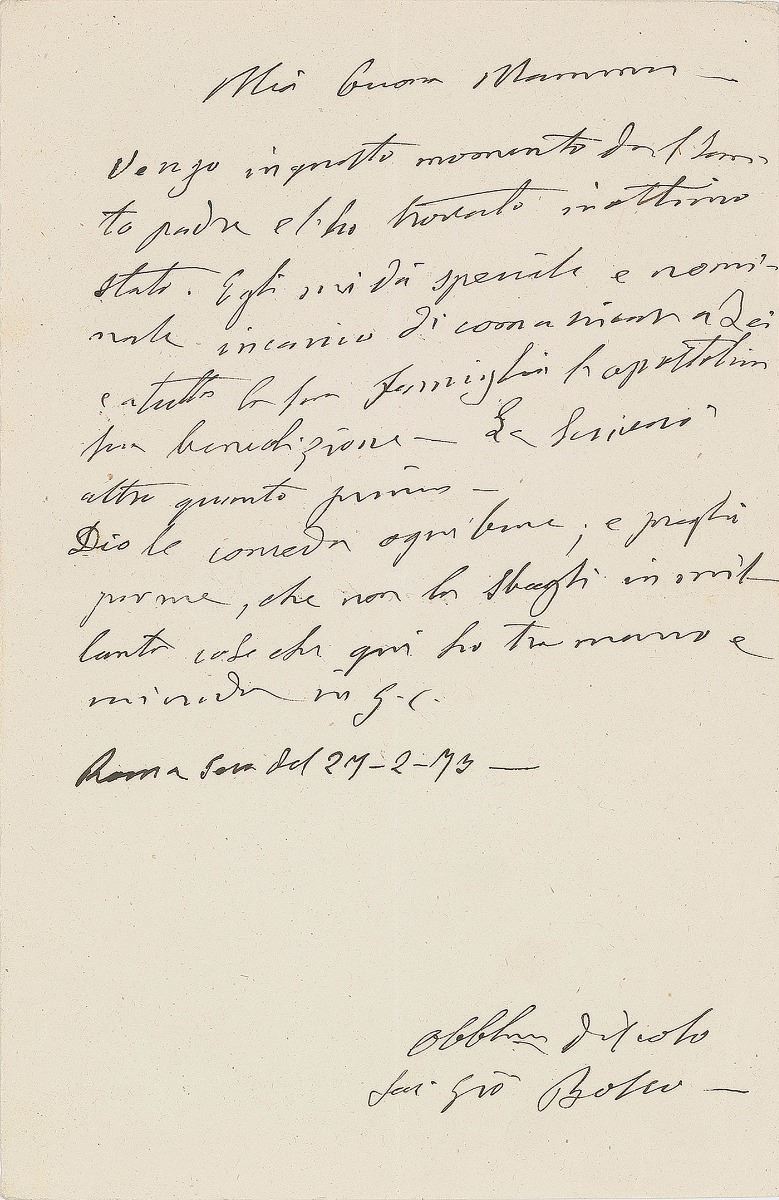 Mia buona Mamma —
Vengo in questo momento dal San-
to padre e l'ho trovato in ottimo
stato. Egli mi dà speciale e nomi-
nale incarico di comunicar a Lei
e a tutta la sua famiglia l'apostolica
sua benedizione — Le scriverò
altro quanto prima —
Dio le conceda ogni bene; e preghi
per me, che non la sbagli in mil
tante cose che qui ho tra mano e
mi creda in G. C.
Roma sera del 27-2-73 —
Obbl.mo discolo
Sac. Gio Bosco —